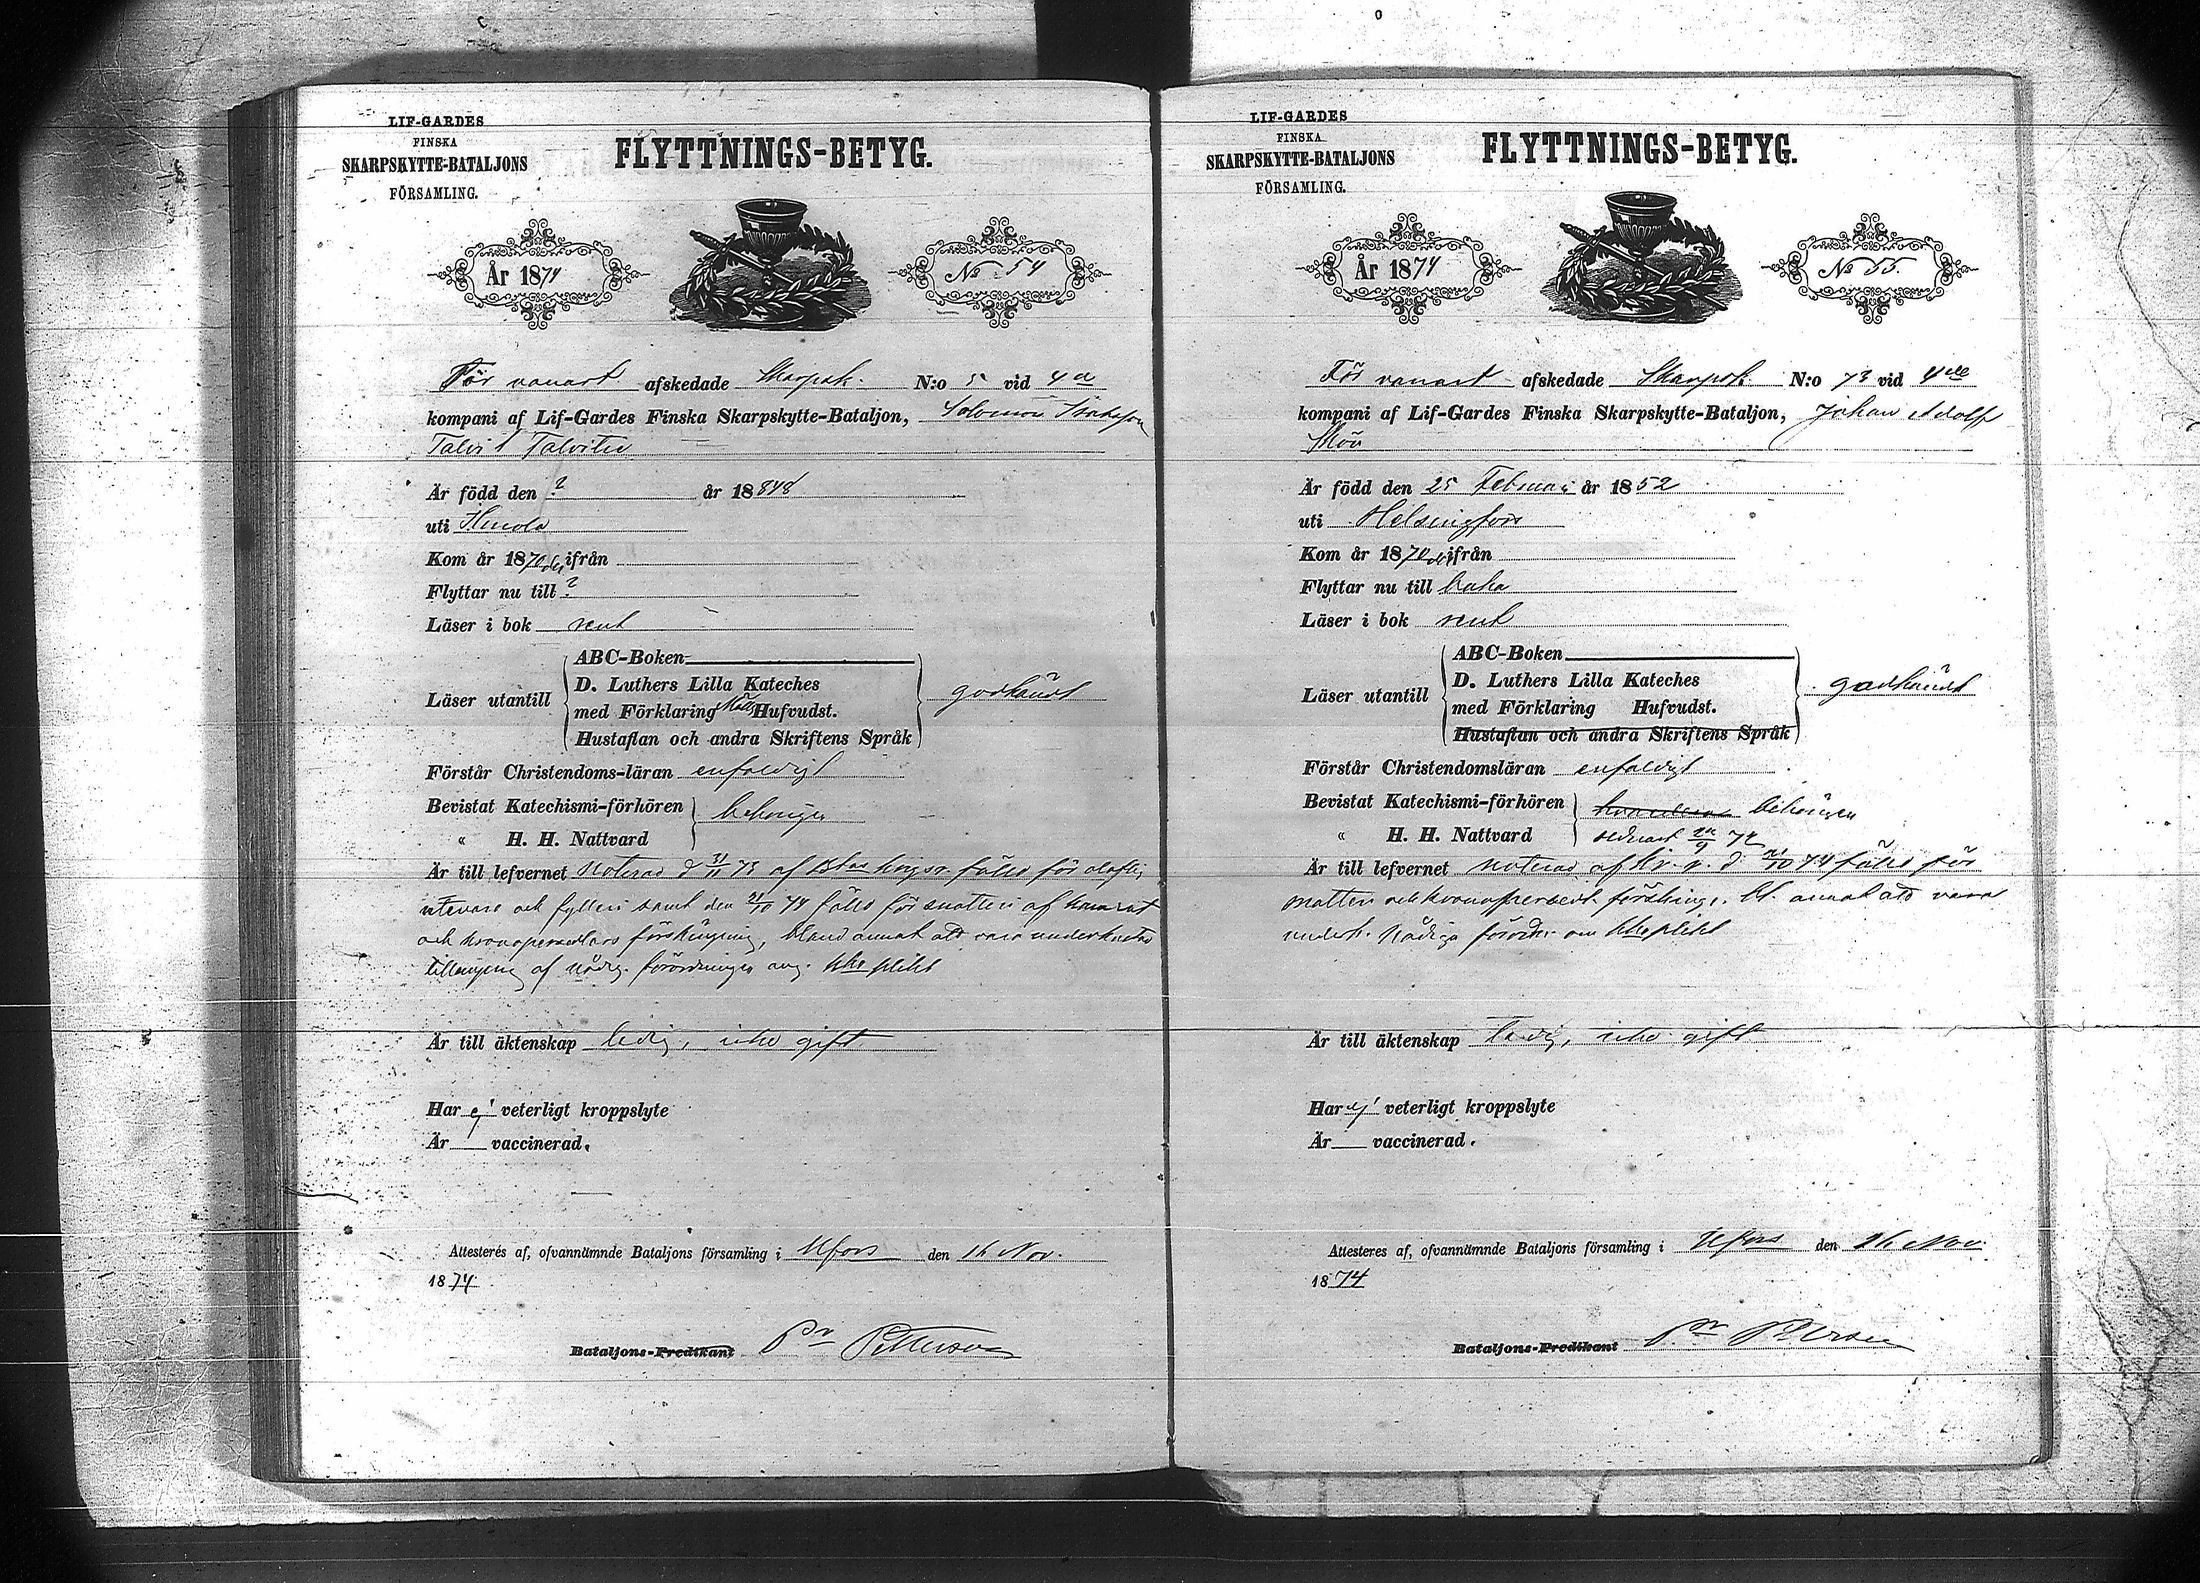 LIF-GARDES
FINSKA
SKARPSKYTTE-BATALJONS
FÖRSAMLING.
FLYTTNINGS-BETYG.
År 1874
No 54
För vanart afskedade Skarpsk. N:o 5 vid 4 de
kompani af Lif-Gardes Finska Skarpskytte-Bataljon, Salomon Isaksson
Talvi l. Talvitie
Är född den ? år 18848
uti
Kom år 1870 ifrån
Flyttar nu till ?
Läser i bok rent
ABC-Boken
Läser utantill D. Luthers Lilla Kateches
med Förklaring Hufvudst. godkändt
Hustaflan och andra Skriftens Språk
Förstår Christendoms-läran enfaldigt
Bevistat Katechismi-förhören behörigen
" H. H. Nattvard
Är till lefvernet Noterad d 31/11 73 af fälld för oloflig
utevaro och fylleri samt den 21/10 74 fälld för snatteri af kamrat
och kronopersedlars förskingring, bland annat att vara underkastad
tillämpning af nådig. förordningen ang.
Är till äktenskap ledig, icke gift
Har ej veterligt kroppslyte
Är vaccinerad.
Attesterés af, ofvannämnde Bataljons församling i Hfors den 16 Nov.
1874.
Bataljons-Predikant Pr Petterson
LIF-GARDES
FINSKA
SKARPSKYTTE-BATALJONS
FÖRSAMLING.
FLYTTNINGS-BETYG.
År 1874
No 55.
För vanart afskedade Skarpsk. N:o 73 vid 4de
kompani af Lif-Gardes Finska Skarpskytte-Bataljon, Johan Adolf
Är född den 25 Februari år 1852
uti Helsingfors
Kom år 1870 ifrån
Flyttar nu till
Läser i bok rent
ABC-Boken
Läser utantill D. Luthers Lilla Kateches
med Förklaring Hufvudst. godkändt
Hustaflan och andra Skriftens Språk
Förstår Christendomsläran enfaldigt
Bevistat Katechismi-förhören behörigen
" H. H. Nattvard senast 74
Är till lefvernet noterad af kr. r. d 21/10 74 fälld för
snatteri och kronopersedl. förskingr. bl. annat att vara
underk. Nådiga förordn. om
Är till äktenskap ledig, icke gift
Har ej veterligt kroppslyte
Är vaccinerad.
Attesteres af, ofvannämnde Bataljons församling i Hfors den 16 Nov.
1874
Bataljons-Predikant Pr Petterson